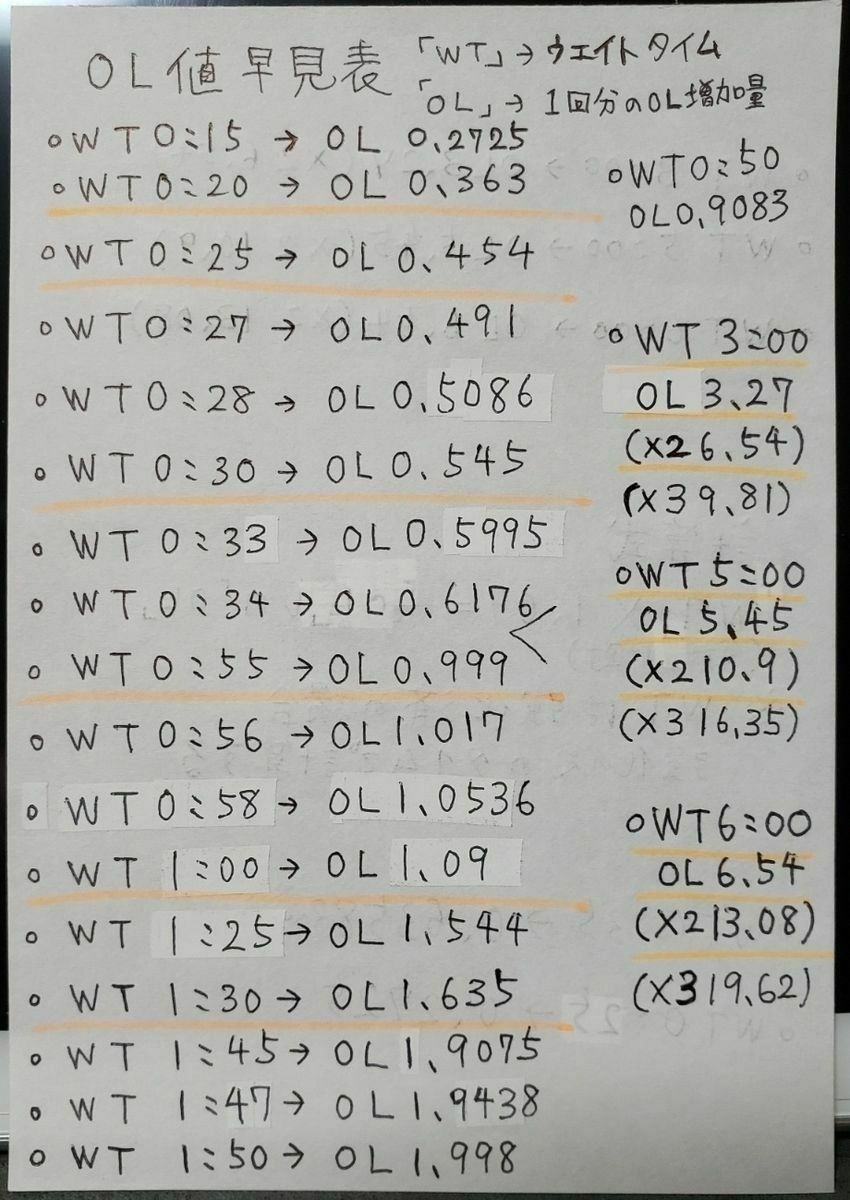 OL値早見表
「WT」→ウエイトタイム
「OL」→1回分のOL増加量
○WT0:15→OL 0.2725
○WT0:20→OL 0.363
○WT0:25→OL0.454
○WT0:27→OL0.491
○WT0:28→OL0.5086
○WT0:30→OL0.545
○WT0:33→OL0.5995
○WT0:34→OL0.6176
○WT0:55→OL0.999
○WT0:56→OL1.017
○WT0:58→OL1.0536
○WT 1:00→OL1.09
○WT 1:25→OL1.544
○WT 1:30→OL1.635
○WT 1:45→OL1.9075
○WT 1:47→OL1.9438
○WT 1:50→OL1.998
○WT0:50
OL0.9083
○WT3:00
OL3.27
(×26.54)
(×39.81)
○WT5:00
OL5.45
(×210.9)
(×316.35)
○WT6:00
OL6.54
(×213.08)
(×319.62)